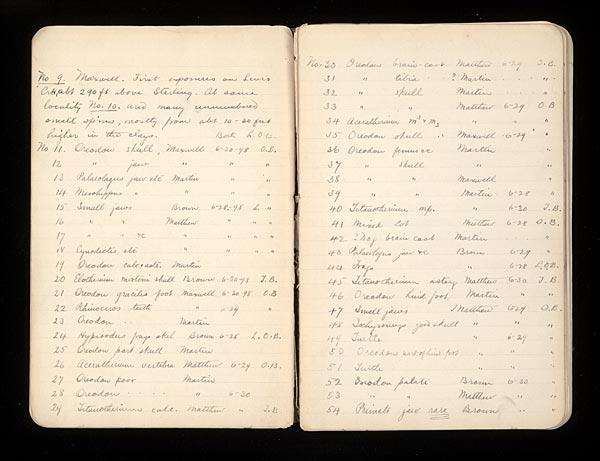 No 9. Maxwell. First exposures on Lewis
Crk, abt 290 ft above Sterling. At same
locality No. 10. and many unnumbered
small spms, mostly from abt 10-20 feet
higher in the clays. Both L.O.B.
No 11. Oreodon skull, Maxwell 6-20-98 O.B.
12 " jaw " " "
13 Palaeolagus jaw etc Martin " "
14 Mesohippus " " " "
15 Small jaws Brown 6-28-98 L. "
16 " " Matthew " " "
17 " " &c " " " "
18 Cynodictis etc " " " "
19 Oreodon calc. astr. Martin
20 Elotherium mortoni skull Brown 6-20-98 T.B.
21 Oreodon gracilis foot Maxwell 6-20-98 O.B
22 Rhinoceros teeth " " 29 "
23 Oreodon Martin
24 Hypisodus jaws Brown 6-28 L.O.B.
25 Oreodon part skull Martin
26 Aceratherium vertebra Matthew 6-29 O.B.
27 Oreodon poor Martin
28 Oreodon " 6-30
29 Titanotherium calc. Matthew " T.B.
No. 30 Oreodon brain-cast Matthew 6-29 O.B.
31 " tibia ? Martin " "
32 " skull Martin "
33 " " Matthew 6-29 O.B
34 Aceratherium m & m3 " " "
35 Oreodon skull Maxwell 6-29 "
36 Oreodon Martin "
37 " skull " "
38 " " Maxwell "
39 " " Martin 6-28 "
40 Titanotherium mp. " 6-30 T.B.
41 Mixed lot Matthew 6-28 O.B.
42 ? Dog brain cast Martin "
43 Palaeolagus jaw &c Brown 6-29 "
44 Frags " 6-28 L.O.B.
45 Titanotherium astrag Matthew 6-30 T.B.
46 Oreodon hind foot Martin " "
47 Small jaws Matthew 6-29 O.B.
48 skull " " "
49 Turtle " 6-29 "
50 Oreodon part of hind foot " " "
51 Turtle " " "
52 palate Brown 6-30 "
53 " " Matthew " "
54 Primate jaw rare Brown " "